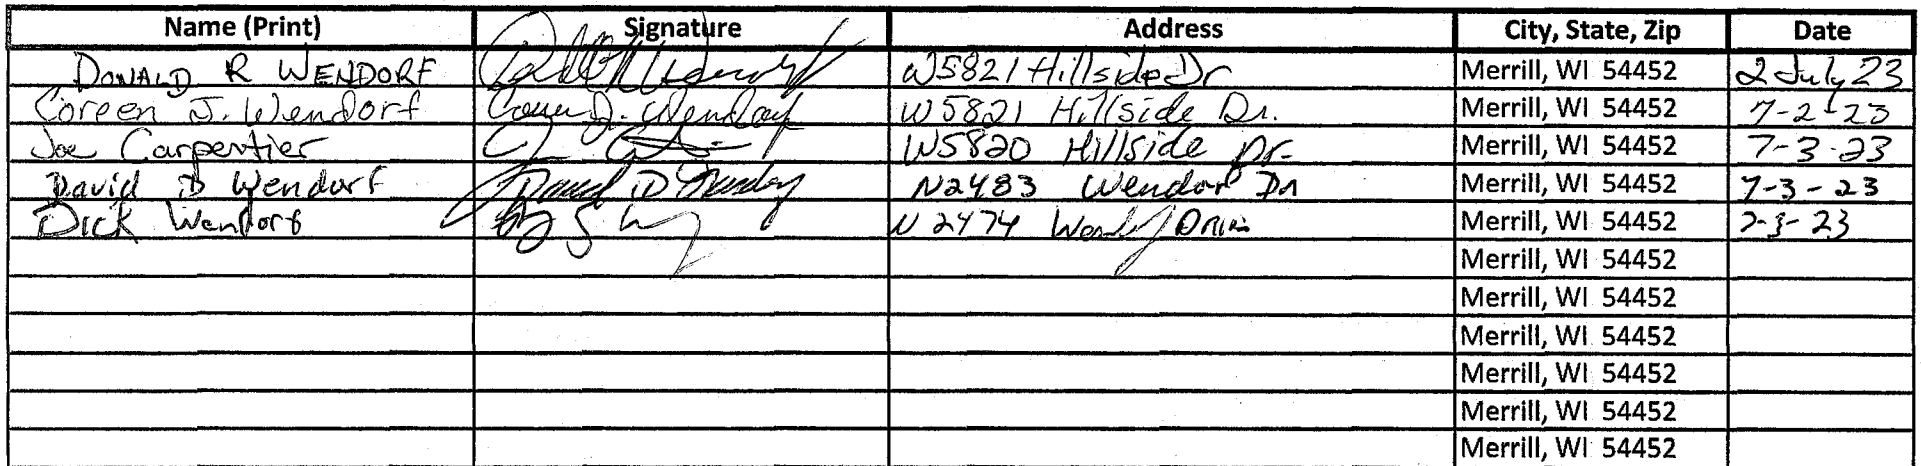 Name (Print) Signature Address City, State, Zip Date
DONALD R WENDORF W5821 Hillside Dr Merrill, WI 54452 2 July 23
Coreen J. Wendorf Coreen J. Wendorf W5821 Hillside Dr. Merrill, WI 54452 7-2-23
Joe Carpentier W5820 Hillside Dr. Merrill, WI 54452 7-3-23
David D Wendorf David D Wendorf N2483 Wendorf Dr Merrill, WI 54452 7-3-23
Dick Wendorf N2474 Drive Merrill, WI 54452 7-3-23
Merrill, WI 54452
Merrill, WI 54452
Merrill, WI 54452
Merrill, WI 54452
Merrill, WI 54452
Merrill, WI 54452